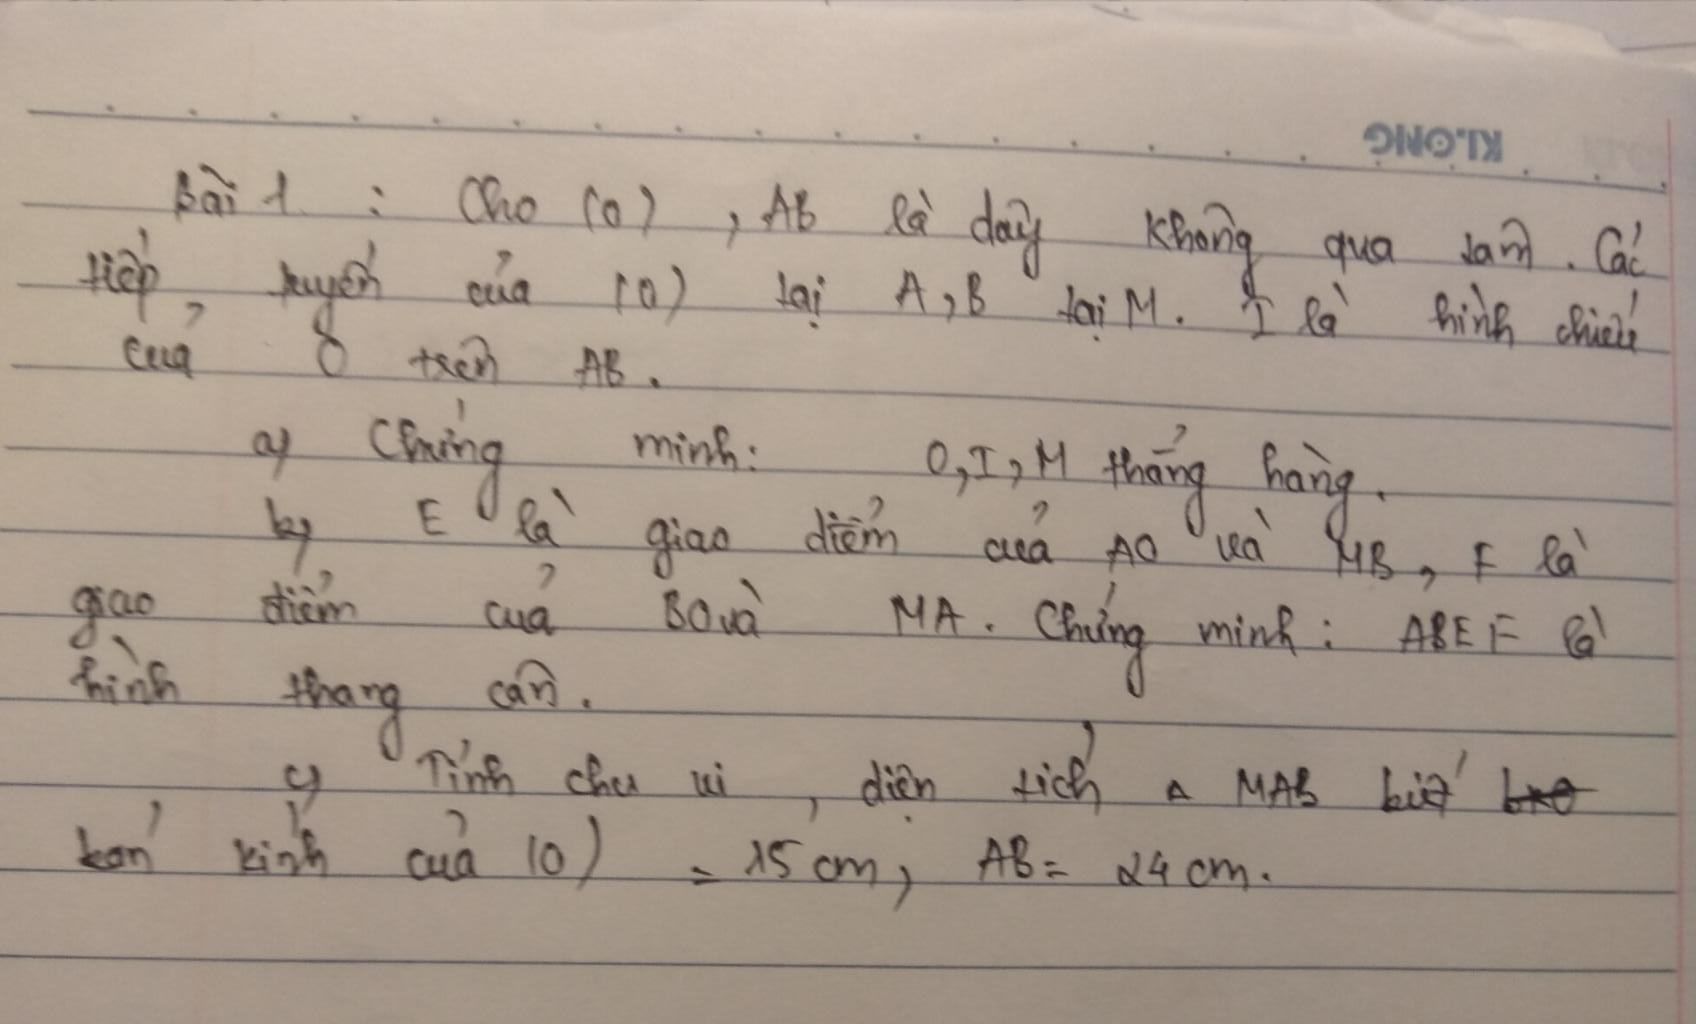 KLONG
Bài 1 : Cho (O) , AB là dây không qua tâm. Các
tiếp tuyến của (O) tại A, B tại M. I là hình chiếu
của O trên AB.
a) Chứng minh: O, I, M thẳng hàng.
b) E là giao điểm của AO và MB, F là
giao điểm của BO và MA. Chứng minh: ABEF là
hình thang cân.
c) Tính chu vi, diện tích Δ MAB biết
bán kính của (O) = 15 cm, AB = 24 cm.